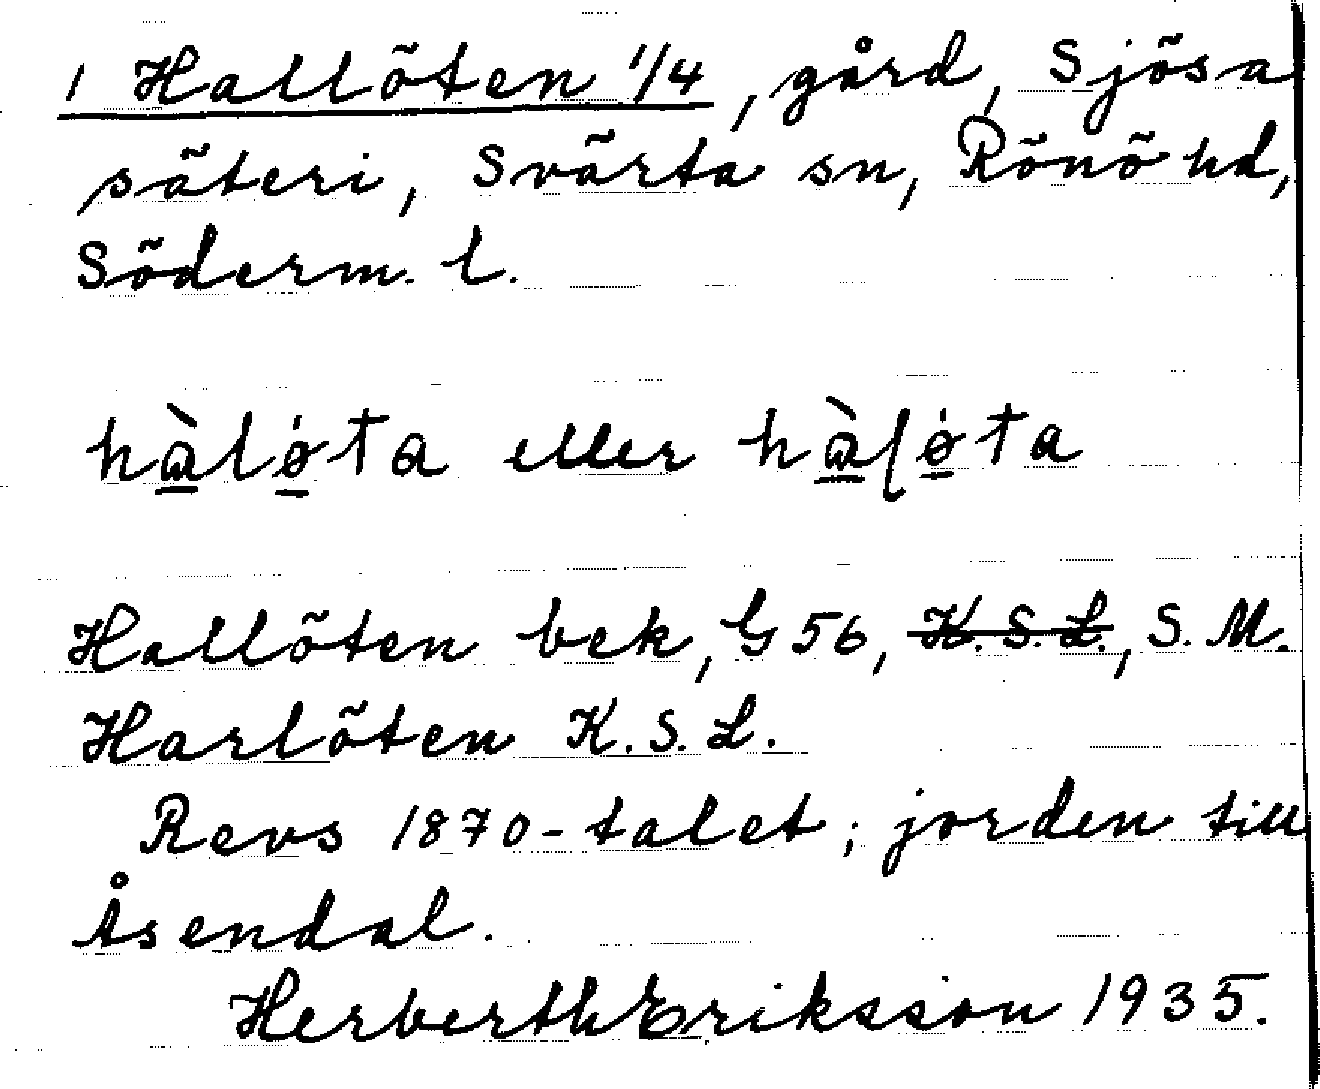 1 Hallöten 1/4, gård, Sjösa
säteri, Svärta sn, Rönö hd,
Söderm. l.
hàlø̇ta eller hàļø̇ta
Hallöten bek, G 56, ~~K.S.L.~~, S.M.
Harlöten K.S.L.
Revs 1870-talet; jorden till
Åsendal.
Herberth Eriksson 1935.